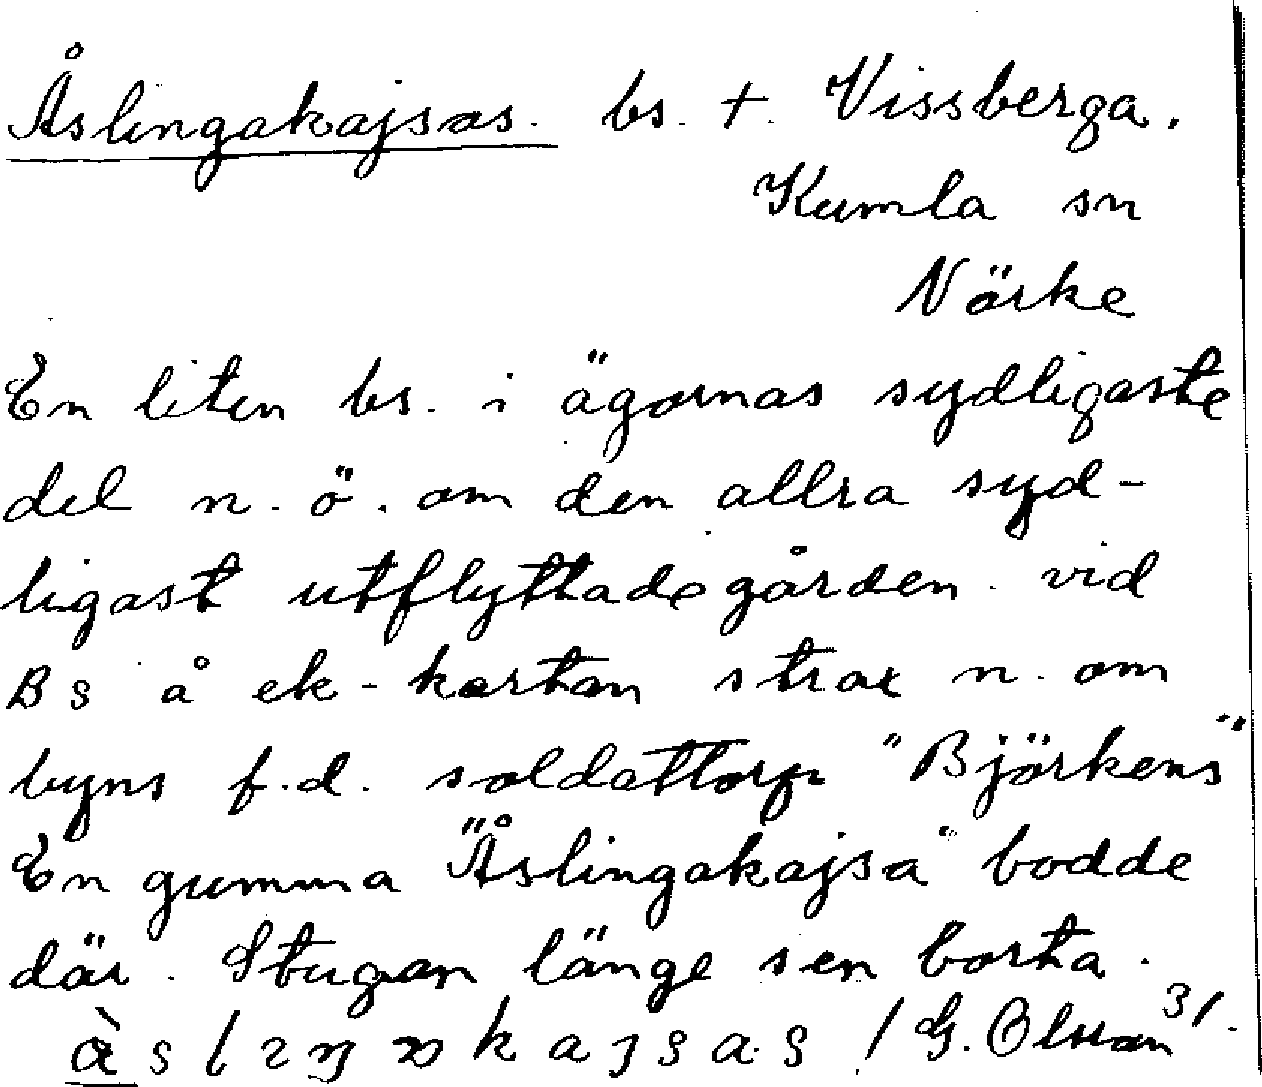 Åslingakajsas. bs. †. Vissberga.
Kumla sn
Närke
En liten bs. i ägornas sydligaste
del n. ö. om den allra syd-
ligast utflyttade gården. vid
Bs å ek-kartan strax n. om
byns f.d. soldattorp "Björkens"
En gumma "Åslingakajsa" bodde
där. Stugan länge sen borta.
/ G. Olsson 31.